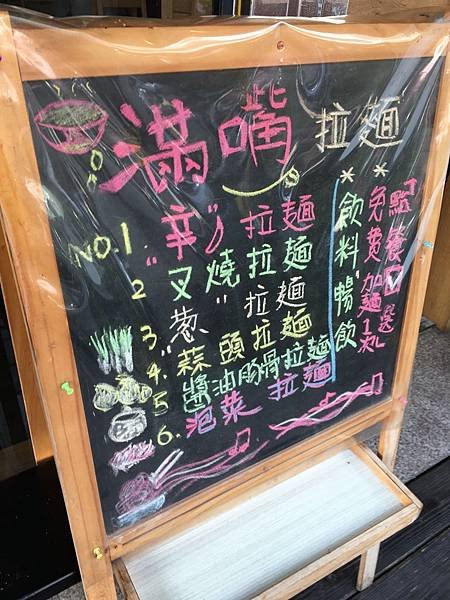 滿嘴 拉麵
NO.1. "辛" 拉麵
2 叉燒拉麵
3 "葱" 拉麵
4. "蒜頭拉麵
5 醬油豚骨拉麵
6. 泡菜 拉麵
*飲料暢飲
*免費加麵1球
點餐
送